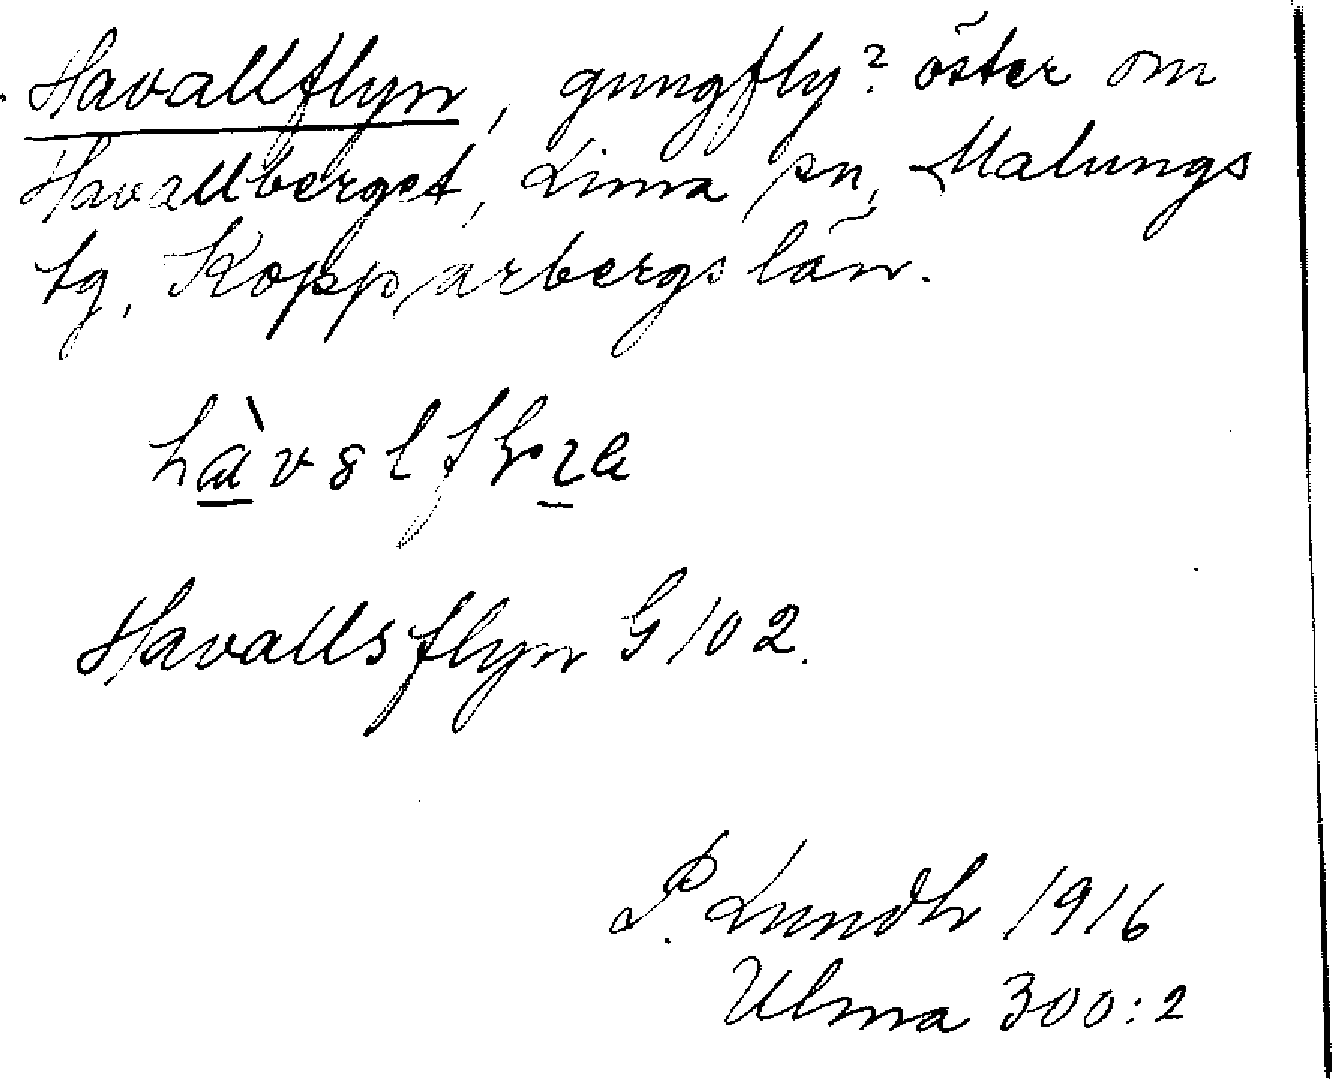 Havallflyn, gungfly? öster om
Havallberget, Lima sn, Malungs
tg, Kopparbergs län.
Havallsflyn G 102.
P. Lundh 1916
Ulma 300:2